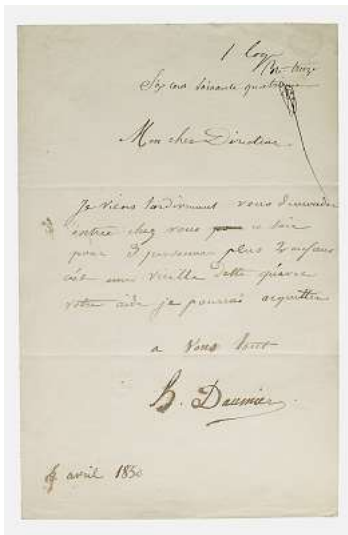 1 Log
Six cent soixante quatorze
Mon cher Directeur.
Je viens tardivement vous demander
entrée chez vous ce soir
pour 3 personnes plus 2 enfans
c'est une vieille dette qu'avec
votre aide je pourrai acquitter
a vous tout
h. Daumier.
avril 1850